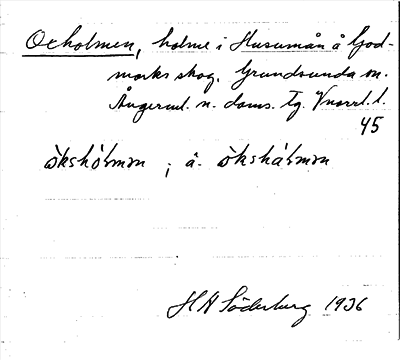 Oxholmen, holme i Husumån å God-
marks skog. Grundsunda sn.
Ångerml. n. doms. tg. Vnorrl. l.
45
òkshólmøn ; â. òkshálmøn
H H Söderberg 1936